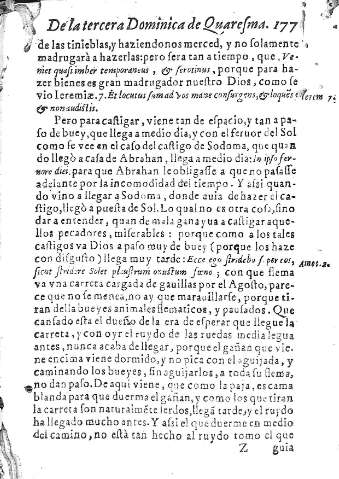 De la tercera Dominica de Quaresma. 177
de las tinieblas, y haziendonos merced, y no solamente
madrugarà a hazerlas: pero sera tan a tiempo, que, Ve-
niet quasi imber temporaneus, & serotinus, porque para ha-
zer bienes es gran madrugador nuestro Dios, como se
vio Ieremiæ. 7. Et locutus sum ad vos mane consurgens, & loquēs
Ierem 7.
& non audistis.
Pero para castigar, viene tan de espacio, y tan a pa-
so de buey, que llega a medio dia, y con el feruor del Sol
como se vee en el caso del castigo de Sodoma, que quan
do llegò a casa de Abrahan, llega a medio dia: In ipso fer-
uore diei. para que Abrahan le obligasse a que no passasse
adelante por la incomodidad del tiempo. Y assi quan-
do vino a llegar a Sodoma, donde auia de hazer el cas-
tigo, llegò a puesta de Sol. Lo qual no es otra cosa, sino
dar a entender, quan de mala gana va a castigar aque-
llos pecadores, miserables: porque como a los tales
castigos va Dios a paso muy de buey (porque los haze
con disgusto) llega muy tarde: Ecce ego stridebo s. per eos,
Amos. 2.
sicut stridere solet plaustrum onustum fæno; con que flema
va vna carreta cargada de gauillas por el Agosto, pare-
ce que no se menea, no ay que marauillarse, porque ti-
ran della bueyes animales flematicos, y pausados. Que
cansado està el dueño de la era de esperar que llegue la
carreta, y con oyr el ruydo de las ruedas media legua
antes, nunca acaba de llegar, porque el gañan que vie-
ne encima viene dormido, y no pica con el aguijada, y
caminando los bueyes, sin aguijarlos, a toda su flema,
no dan paso. De aqui viene, que como la paja, es cama
blanda para que duerma el gañan, y como los que tiran
la carreta son naturalmēte lerdos, llegā tarde, y el ruydo
ha llegado mucho antes. Y assi el que duerme en medio
del camino, no està tan hecho al ruydo como el que
Z guia